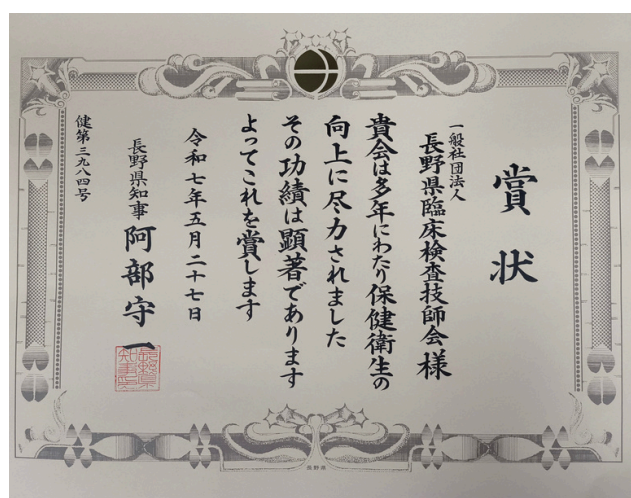 賞状
一般社団法人
長野県臨床検査技師会様
貴会は多年にわたり保健衛生の
向上に尽力されました
その功績は顕著であります
よってこれを賞します
令和七年五月二十七日
長野県知事 阿部守一
長野県知事印
健第三九八四号
長野県